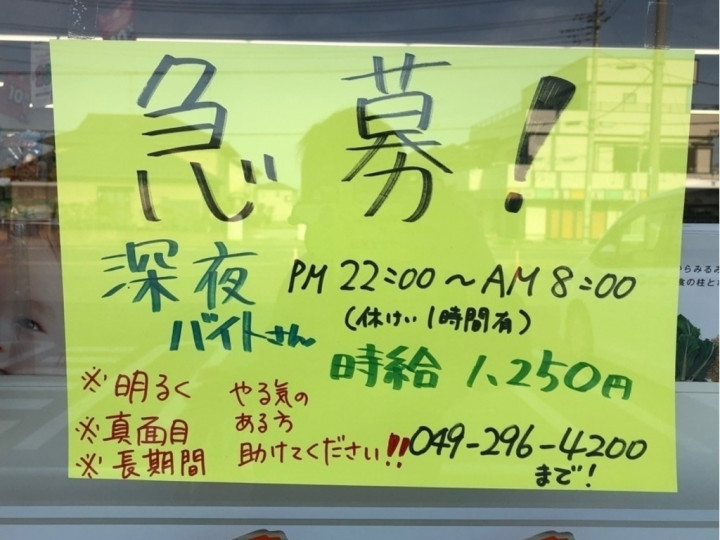 急募!
深夜 PM 22:00～AM 8:00
バイトさん (休けい1時間有)
時給 1,250円
※明るく やる気の
※真面目 ある方
※長期間 助けてください!! 049-296-4200
まで!
からみるみ
食の柱とな
10